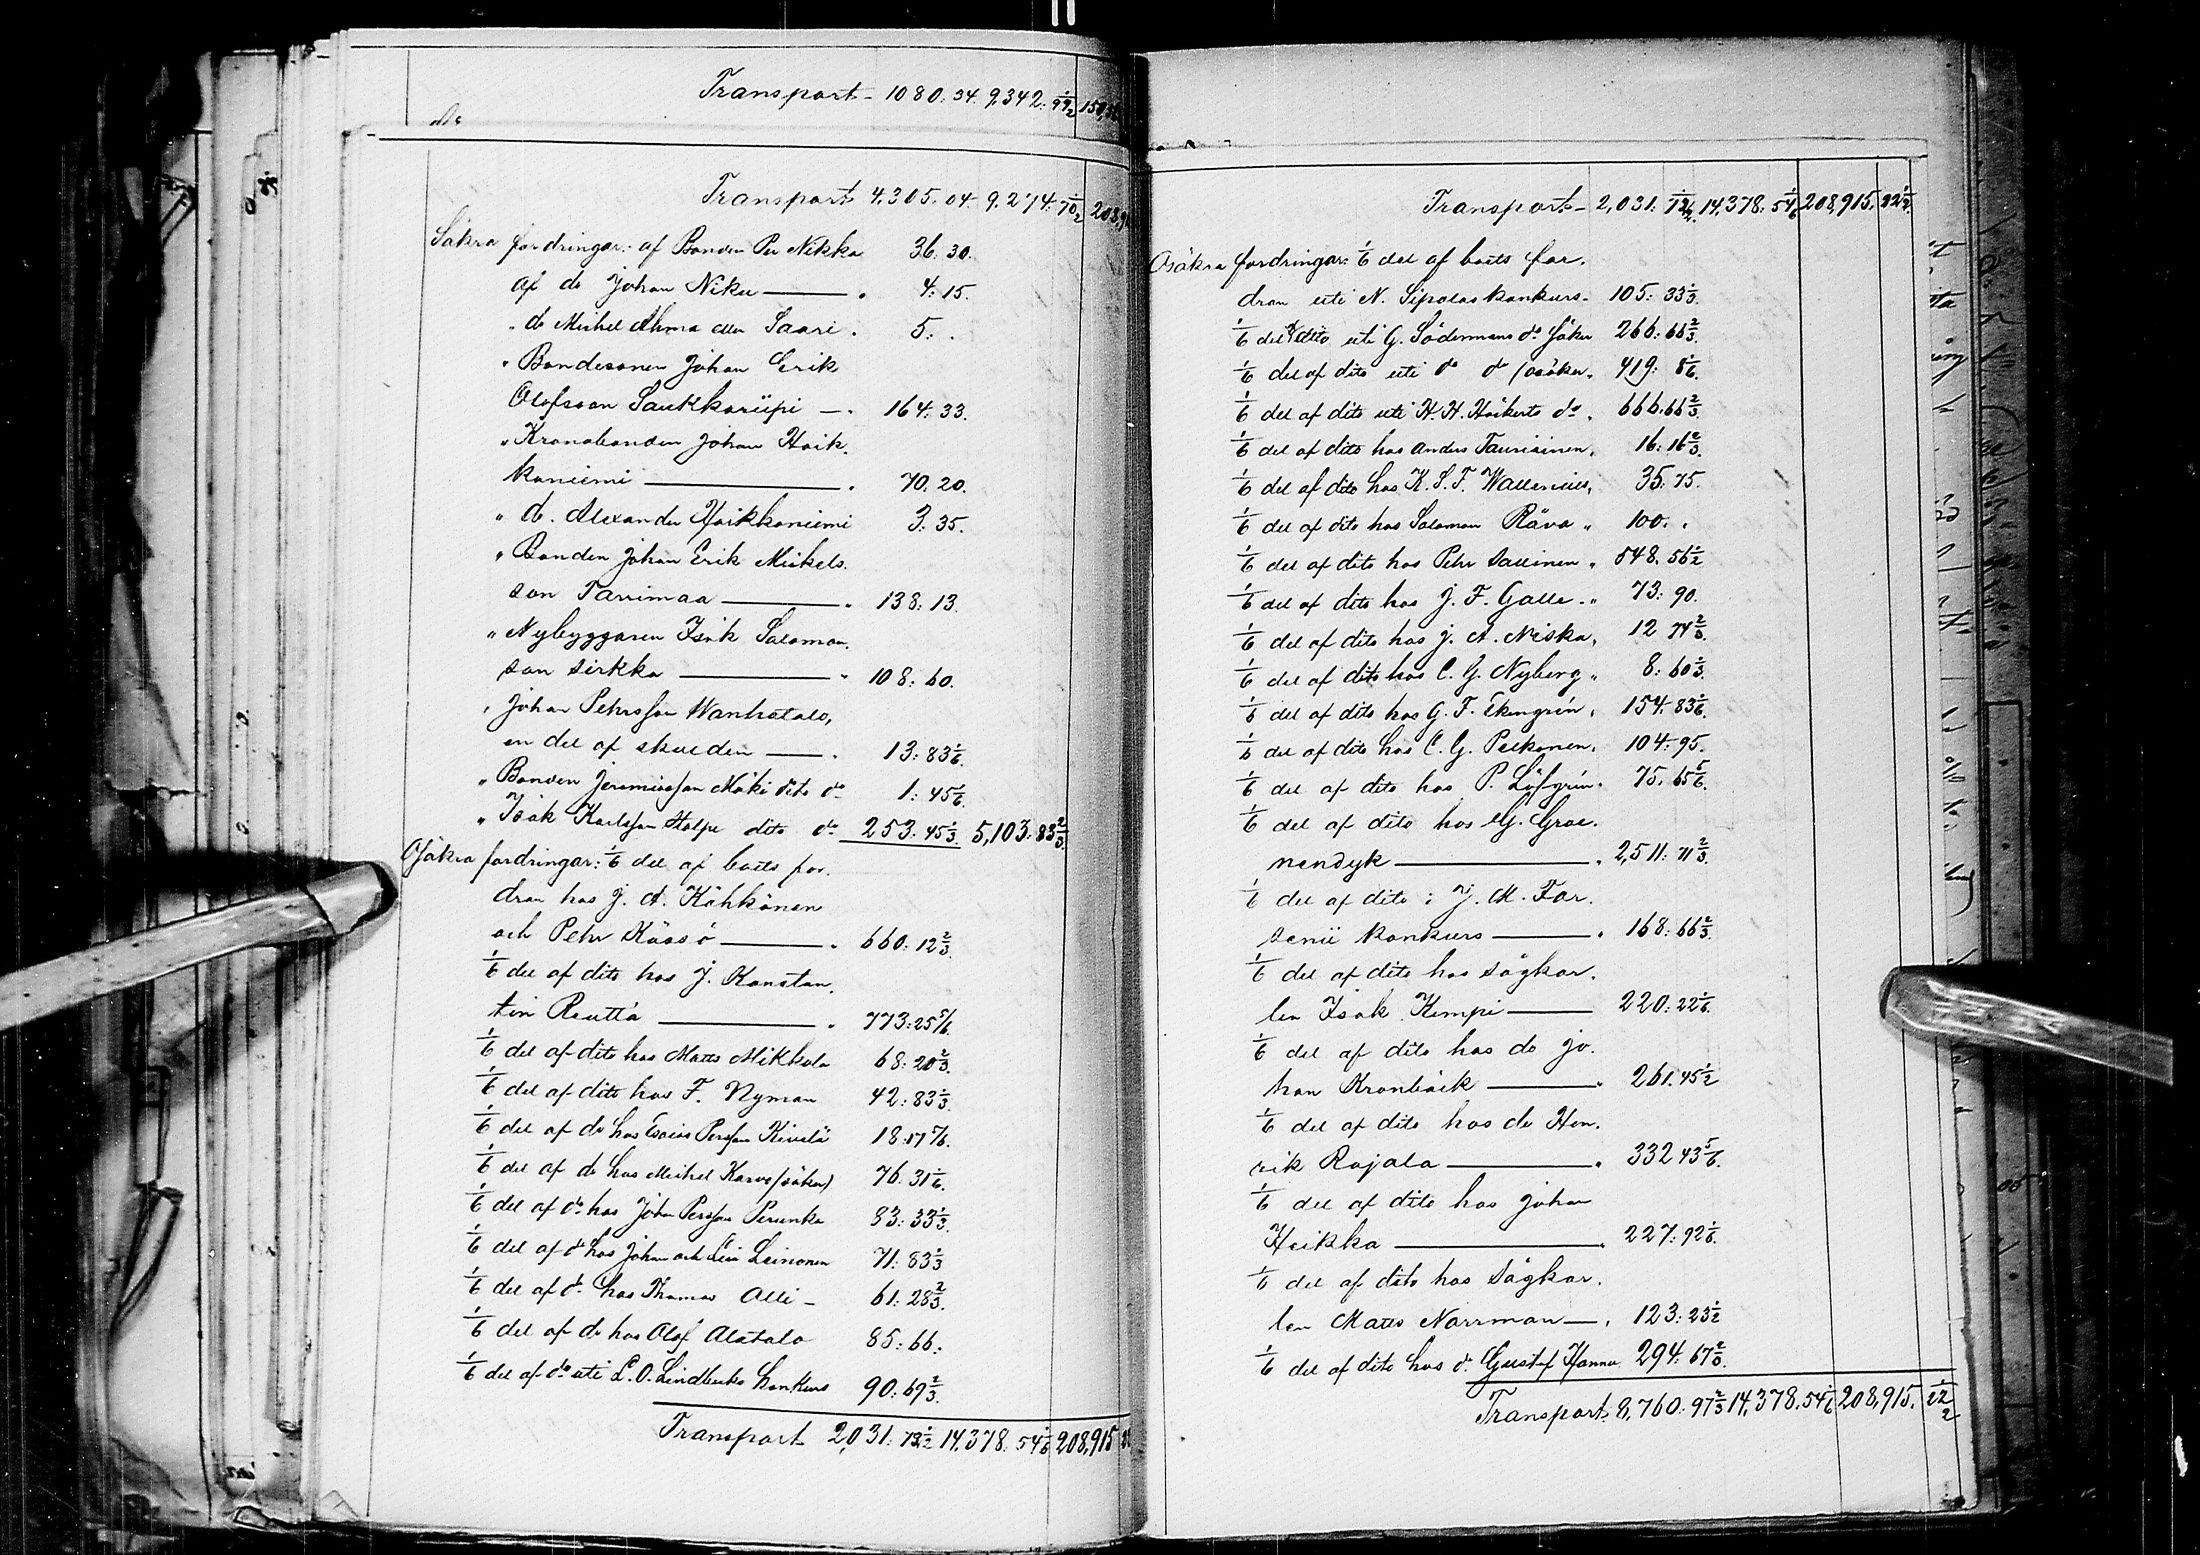 Transport - 1080. 34. 9,342: 99 1/2 150,
Transport 4,305. 04. 9,274. 70 1/2 208,9
Säkra fordringar: af Bonden Per Nikka 36: 30.
af do Johan Niku — " 4: 15.
" do Michel Ahma eller Saari " 5: "
" Bondesonen Johan Erik
Olofsson Saukkoriipi — " 164: 33.
" Kronobonden Johan Haik-
kaniemi — " 70. 20.
" do. Alexander Haikkaniemi 3: 35.
" Bonden Johan Erik Mickels-
son Tarrimaa — " 138: 13.
" Nybyggaren Isak Salomon-
son Sirkka — " 108: 60.
" Johan Pehrsson Wanhatalo,
en del af skulden — " 13: 83 1/6.
" Bonden Jeremiasson Mäki dito do 1: 45 5/6.
" Isak Karlsson Stolpe dito do 253: 45 1/3. 5,103: 83 2/3.
Osäkra fordringar: 1/6 del af boets for-
dran hos J. A.Köhkönen
och Pehr Kässö — " 660: 12 2/3.
1/6 del af dito hos J. Konstan-
tin Reutta — " 773: 25 5/6.
1/6 del af dito hos Matts Mikkola 68: 20 2/3.
1/6 del af dito hos F. Nyman 42: 83 1/3.
1/6 del af do hos Esaias Persson Kivelä 18: 51 5/6.
1/6 del af do hos Michel Karvo (säker) 76. 31 1/6.
1/6 del af do hos Johan Persson Perunka 83: 33 1/3.
1/6 del af do hos Johan och Leinonen 71: 83 1/3
1/6 del af do hos Thomas Alli - 61: 28 2/3.
1/6 del af do hos Olof Alatalo 85: 66.
1/6 del af do uti L. O. Lindbecks konkurs 90: 69 2/3.
Transport 2,031: 72 1/2 14,378: 54 1/6 208,915
Transport - 2,031: 72 1/2. 14,378: 54 1/6 208,915. 22 1/2.
Osäkra fordringar: 1/6 del af boets for-
dran uti N. Sipolas konkurs - 105: 33 1/3.
1/6 del af dito uti G. Södermans do säker 266: 66 2/3.
1/6 del af dito uti do do (osäker. 419: 8 1/6.
1/6 del af dito uti H. H. Haikerts do. 666. 66 2/3.
1/6 del af dito hos Anders Tauriainen, 16: 16 2/3.
1/6 del af dito hos K. S. F. Wallenius, 35: 75.
1/6 del af dito hos Salomon Räva " 100. "
1/6 del af dito hos Pehr Sallinen " 548. 56 1/2
1/6 del af dito hos J. F. Galle - " 73: 90.
1/6 del af dito hos J. A. Niska, 12 74 2/3.
1/6 del af dito hos C. G. Nyberg " 8: 60 2/3.
1/6 del af dito hos G. F. Ekengrén, 154: 83 1/6.
1/6 del af dito hos C. G. Pelkonen, 104: 95.
1/6 del af dito hos P. Löfgrén. 75. 65 5/6.
1/6 del af dito hos G. Groe-
nendyk — " 2,511: 71 2/3.
1/6 del af dito i J. M. For-
senii konkurs — " 168: 66 2/3.
1/6 del af dito hos sågkar-
len Isak Kempi — 220: 22 1/6.
1/6 del af dito hos do Jo-
han Kronbäck — " 261. 45 1/2
1/6 del af dito hos do Hen-
rik Rajala — " 332 43 5/6.
1/6 del af dito hos Johan
Heikka — " 227: 92 1/6.
1/6 del af dito hos sågkar-
len Matts Norrman —. 123: 23 1/2
1/6 del af dito hos do. Gustaf Hannu 294: 67 2/3.
Transport 8,760: 97 2/3 14,378. 54 1/6 208,915. 22 1/2